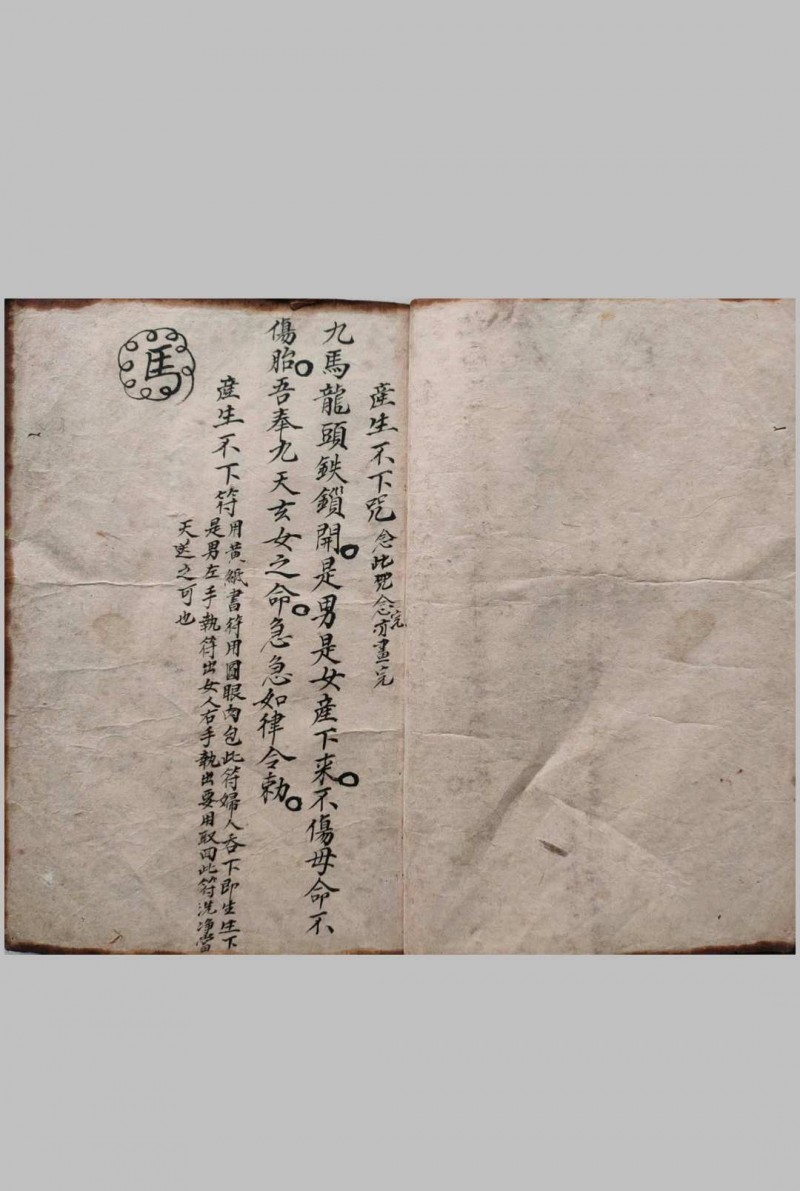 產生不下咒 念此咒念完亦畫完
九馬龍頭鉄鎖開是男是女產下来不傷母命不
傷胎吾奉九天玄女之命急急如律令勅
產生不下符 用黃紙書符用圓眼肉包此符婦人吞下即生生下
是男左手執符出女人右手執出要用取回此符洗净當
天送之可也
馬